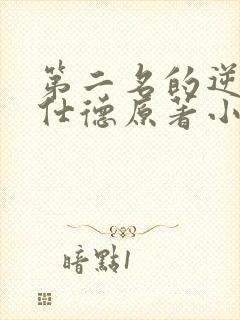 第二名的逆
仕德原著小
暗點1